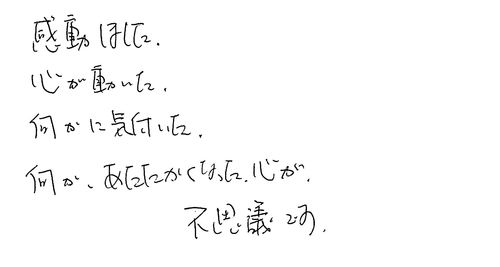 感動ました.
心が動いた.
何かに気付いた.
何か、あたたかくなった.心が.
不思議です.